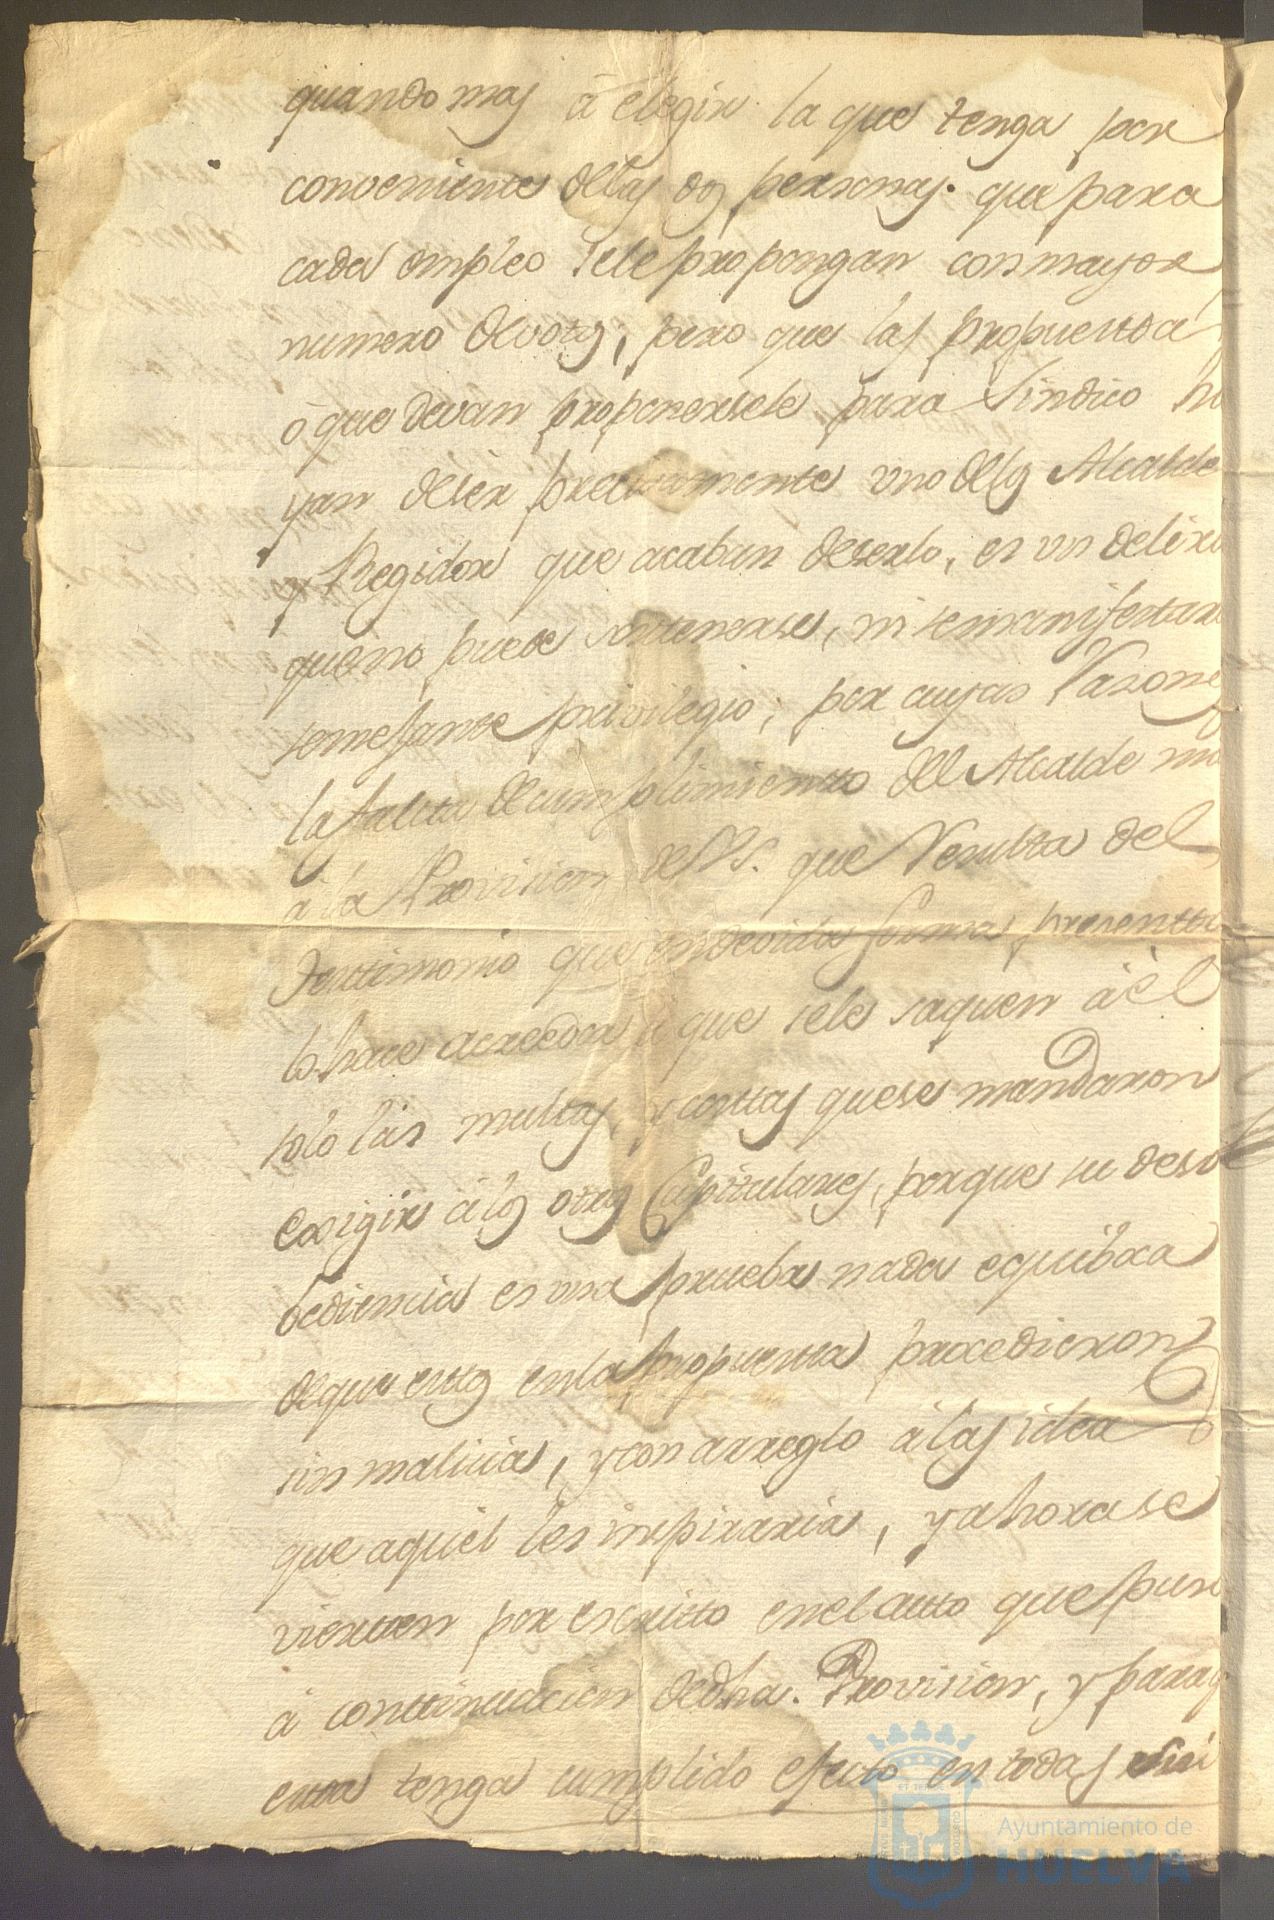 quando mas à elegir la que tenga por
conveniente delas dos personas que para
cada empleo sele propongan con mayor
numero de votos; pero que las propuestas
ó que devan proponersele para Sindico ha
yan de ser precisamente uno delos Alcalde
y Regidor que acaban deserlo, es un deliri
que no puede sostenerse, ni se manifestara
semejante privilegio; por cuyas Razones
la falta de cumplimiento del Alcalde ma
à la Provision de V.S. que Resulta del
Testimonio que en devida forma presento
lo hace acreedor à que sele saquen à èl
solo las multas, y costas que se mandaron
exigir à los otros Capitulares, porque su deso
bediencia es una prueba nada equiboca
de que estos en la propuesta procedieron
sin malicia, y con arreglo à las idea
que aquel les inspiraria, y ahora se
vierten por escrito en el auto que pus
à continuacion de dha. Provision, y para q
esta tenga cumplido efecto en todas
Ayuntamiento de
HUELVA